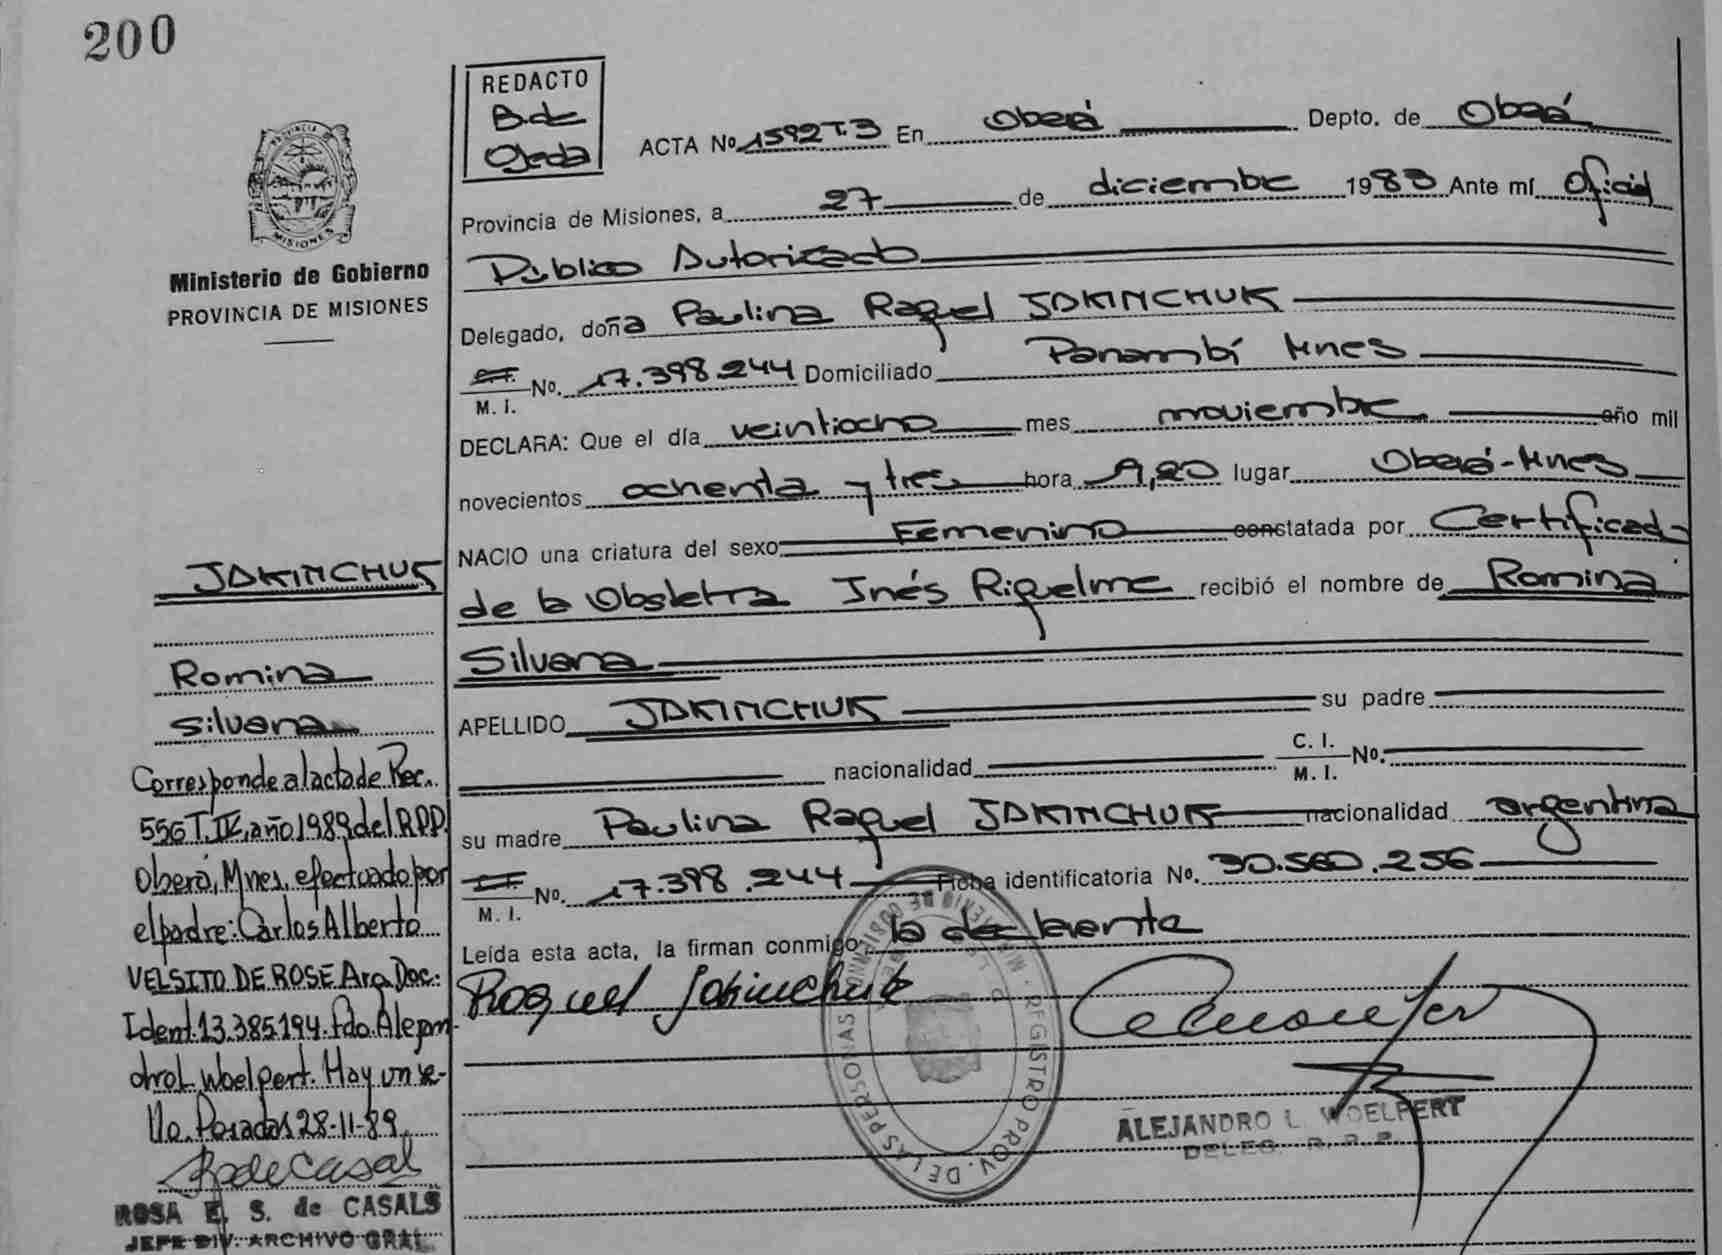 200
REDACTO
B. de
Ojeda
ACTA Nº 1592 T.3 En Oberá Depto. de Oberá
Provincia de Misiones, a 27 de diciembre 1983 Ante mí Oficial
Público Autorizado
Delegado, doña Paulina Raquel JAKIMCHUK
C.I. M. I. No. 17.398.244 Domiciliado Panambí Mnes
DECLARA: Que el día veintiocho mes noviembre año mil
novecientos ochenta y tres hora 9,20 lugar Oberá-Mnes
NACIO una criatura del sexo Femenino constatada por Certificado
de la Obstetra Inés Riquelme recibió el nombre de Romina
Silvana
APELLIDO JAKIMCHUK su padre
nacionalidad C. I. M. I. No.
su madre Paulina Raquel JAKIMCHUK nacionalidad argentina
M. I. No. 17.398.244 Ficha identificatoria No. 30.560.256
Leída esta acta, la firman conmigo la declarante
Raquel Jakimchuk
REGISTRO PROV. DE LAS PERSONAS
MINISTERIO DE GOBIERNO
ALEJANDRO L. WOELPERT
DELEG. R. P. P.
PROVINCIA DE
MISIONES
Ministerio de Gobierno
PROVINCIA DE MISIONES
JAKIMCHUK
Romina
Silvana
Corresponde al acta de Rec.
556 T. IV, año 1989 del R.P.P.
Oberá, Mnes, efectuado por
el padre: Carlos Alberto
VELSITO DE ROSE Arg. Doc:
Ident. 13.385.194. fdo. Alejan
dro L. Woelpert. Hay un se-
llo. Posadas 28-11-89
R de Casal
ROSA E. S. de CASALS
JEFE DIV. ARCHIVO GRAL.